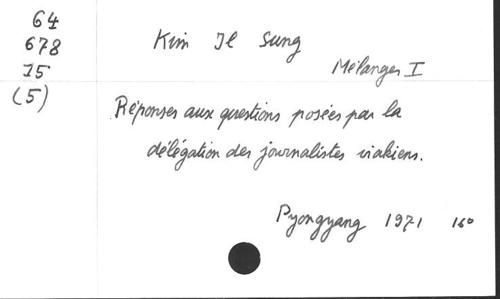 64
678
J5
(5)
Kim Il Sung
Mélanges I
Réponses aux questions posées par la
délégation des journalistes irakiens.
Pyongyang 1971 16°